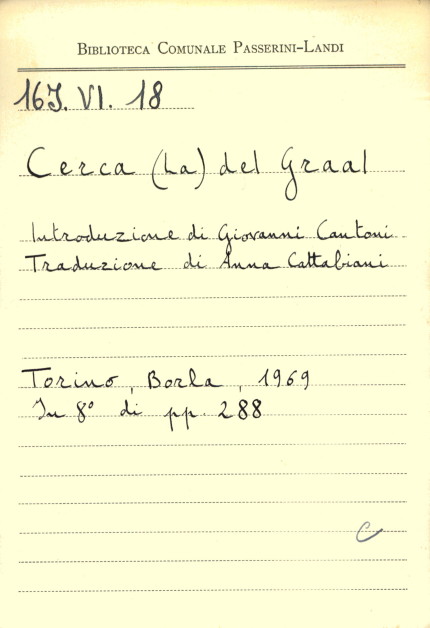 BIBLIOTECA COMUNALE PASSERINI-LANDI
16J. VI. 18
Cerca (La) del Graal
Introduzione di Giovanni Cantoni
Traduzione di Anna Cattabiani
Torino, Borla, 1969
In 8° di pp. 288
C